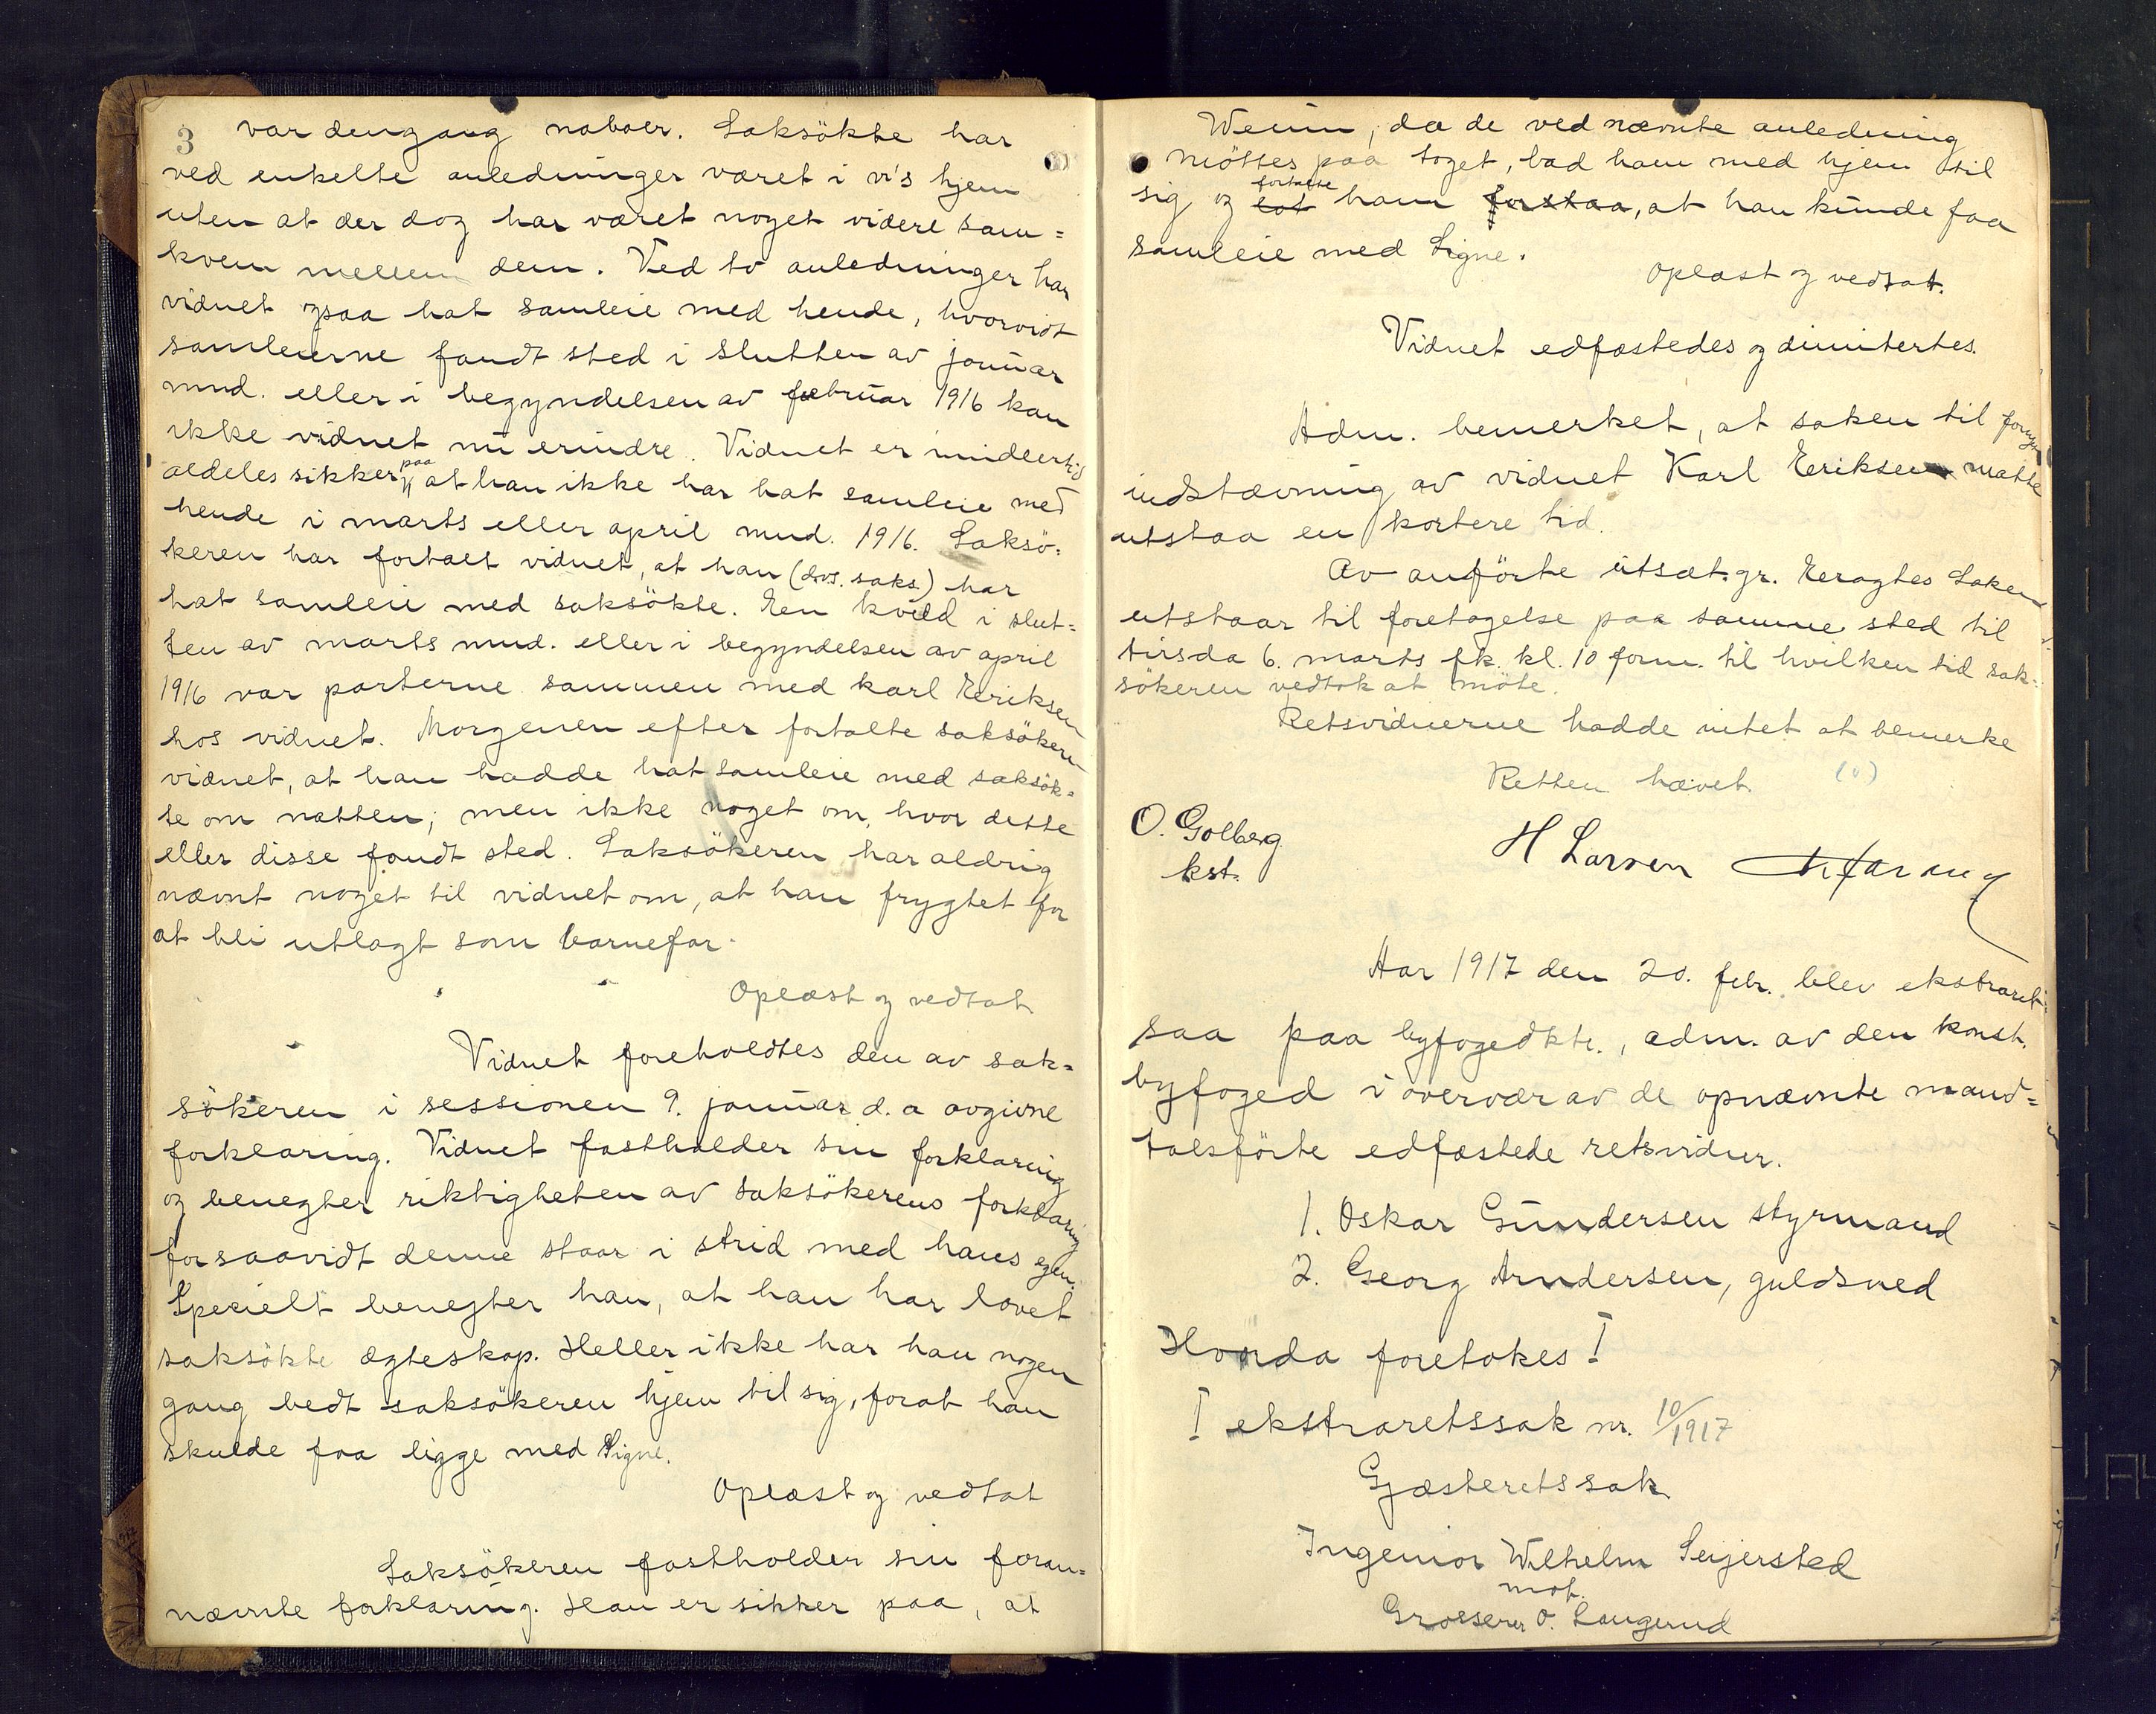 3 var dengang naboer. Saksökte har
ved enkelte anledninger været i vi's hjem
uten at der dog har været noget videre sam=
kvem mellem dem. Ved to anledninger har
vidnet ogsaa hat samleie med hende, hvorvidt
samleierne fandt sted i slutten av januar
mnd. eller i begyndelsen av februar 1916 kan
ikke vidnet nu erindre. Vidnet er imidlertid
aldeles sikker paa at han ikke har hat samleie med
hende i marts eller april mnd. 1916. Saksö=
keren har fortalt vidnet, at han (dvs. saks.) har
hat samleie med saksökte. Een kveld i slut=
ten av marts mnd. eller i begyndelsen av april
1916 var parterne sammen med Karl Eeriksen
hos vidnet. Morgenen efter fortalte saksökeren
vidnet, at han hadde hat samleie med saksök=
te om natten; men ikke noget om, hvor dette
eller disse fandt sted. Saksökeren har aldrig
nævnt noget til vidnet om, at han frygtet for
at bli utlagt som barnefar.
Oplæst og vedtat
Vidnet foreholdtes den av sak=
sökeren i sessionen 9. januar d. a avgivne
forklaring. Vidnet fastholder sin forklaring
og benegter riktigheten av saksökerens forklaring
forsaavidt denne staar i strid med hans egen.
Specielt benegter han, at han har lovet
saksökte ægteskap. Heller ikke har han nogen
gang bedt saksökeren hjem til sig, forat han
skulde faa ligge med Signe.
Oplæst og vedtat
Saksökeren fastholder sin foran=
nævnte forklaring. Han er sikker paa, at
da de ved nævnte anledning
möttes paa toget, bad ham med hjem til
sig og lot fortalte ham forstaa, at han kunde faa
samleie med Signe.
Oplæst og vedtat.
Vidnet edfæstedes og dimitertes.
Adm. bemerket, at saken til
indstævning av vidnet Karl Eeriksen maatte
utstaa en kortere tid.
Av anförte utsæt.gr. Eeragtes Saken
utstaar til foretagelse paa samme sted til
tirsda 6. marts fk. kl. 10 form. til hvilken tid sak=
sökeren vedtok at möte.
Retsvidnerne hadde intet at bemerke
Retten hævet
O. Golberg
kst.
H Larsen
Aar 1917 den 20. febr. blev ekstraret
saa paa byfogedktr., adm. av den konst.
byfoged i overvær av de opnævnte mand=
talsförte edfæstede retsvidner.
1. Oskar Gundersen styrmand
2. Georg Andersen, guldsmed
Hvorda foretokes!
I ekstraretssak nr. 10/1917
Gjæsteretssak
Ingeniör Wilhelm Seijersted
mot.
Grosserer O. Laugerud